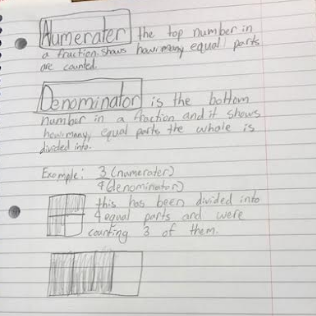 Numerater the top number in
a fraction. shows how many equal parts
are counted.
Denominator is the bottom
number in a fraction and it shows
how many, equal parts the whole is
divided into.
Example: 3 (numerater)
4 (denominator)
this has been divided into
4 equal parts and were
counting 3 of them.